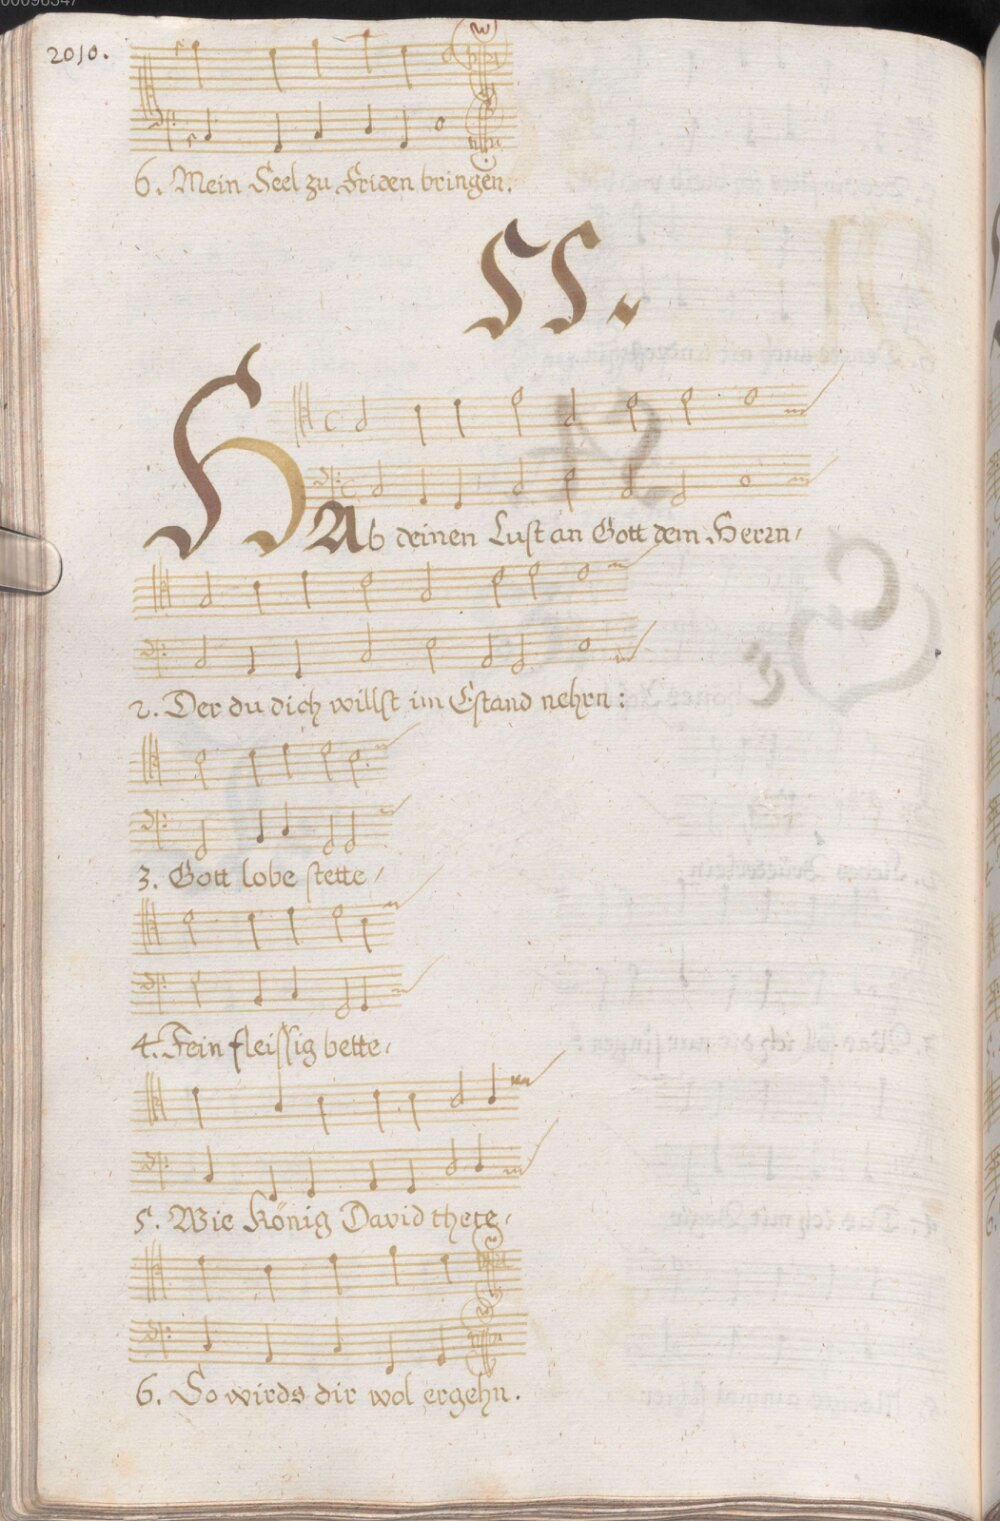 00096347
2010.
6. Mein Seel zu Friden bringen.
SS.
HAb deinen Lust an Gott dem Herrn/
2. Der du dich willst im Estand nehrn:
3. Gott lobe stette/
4. Fein fleissig bette/
5. Wie König David thete/
6. So wirds dir wol ergehn.